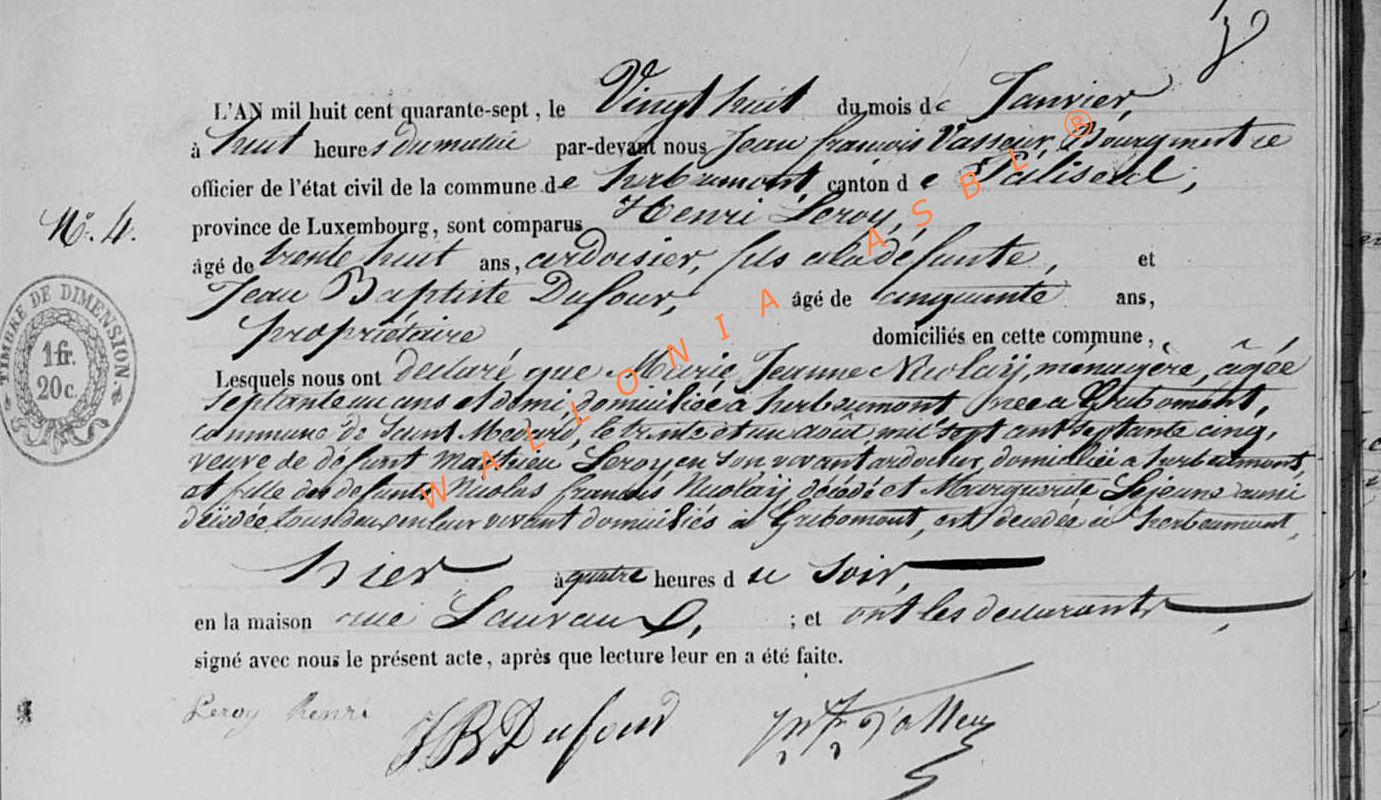 L'AN mil huit cent quarante-sept, le Vingt huit du mois de Janvier,
à huit heures du matin par-devant nous Jean françois Vasseur, Bourgmestre
officier de l'état civil de la commune de herbeumont, canton de Paliseul,
province de Luxembourg, sont comparus Henri Leroy,
N.º 4.
âgé de trente huit ans, ardoisier, fils à la défunte, et
Jean Baptiste Dufour, âgé de cinquante ans,
propriétaire domiciliés en cette commune,
Lesquels nous ont déclaré que Marie Jeanne Nicolaÿ, ménagère, âgée
septante un ans et demi, domiciliée à herbeumont, née à Gribomont,
commune de Saint Medard, le trente et un août mil sept cent septante cinq,
veuve de défunt Mathieu Leroy en son vivant ardoisier, domicilié à herbeumont,
et fille des défunts Nicolas françois Nicolaÿ, décédé et Marguerite Lejeune aussi
décédée tous deux en leur vivant domiciliés à Gribomont, est décédée à herbeumont,
hier à quatre heures d u soir,
en la maison rue Lauvaux, ; et ont les déclarants
signé avec nous le présent acte, après que lecture leur en a été faite.
Leroy Henri JB Dufour
TIMBRE DE DIMENSION.
1 fr.
20 c.
WALLONIA ASBL ®